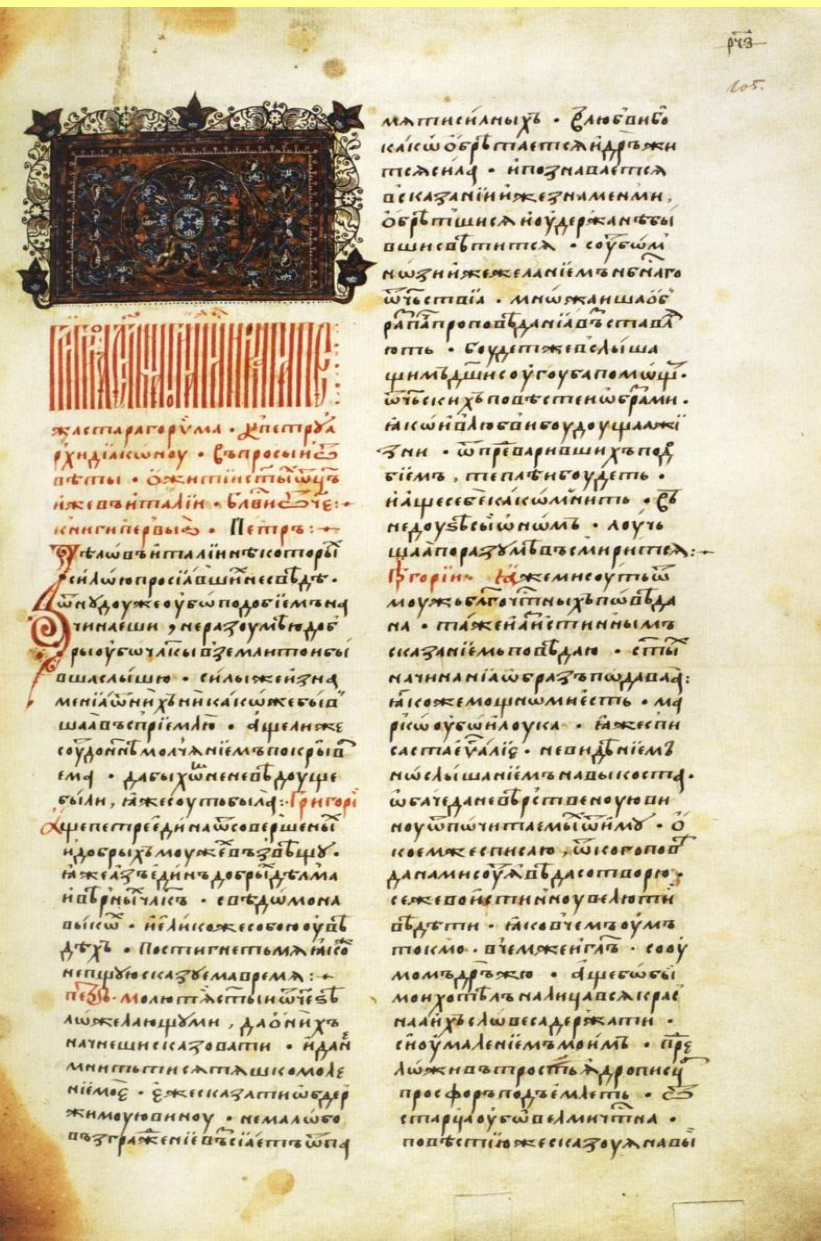 рч҃з
105.
жа старагорѷма · къпетрꙋа
рхидїаконоу · въпросыиѿ
вѣты · ѡжитїиⷭ҇тыⷯѿц҃ъ
ижевъиталїи · блⷭ҇виѿч҃е:·
книгипервыѧ · Петръ:·
сїлѡюпросїавшиⷯнесвѣдѣ ·
ѿнꙋдоужеоубѡподобїемъна
чинаеши , неразоумѣюдоб
рыоубѡчл҃кывземлитоибы
вшаслышю · силыжеизна
менїаѿниⷯхъникакѡжебыв
шаавъспрїемлю · ащелиже
соудонн҃ѣмолчѧнїемъпокрыв
ема · дабыхѡⷨненевѣдоуще
были, ꙗжесоутьбыла:· Григорї
Ащепетреединаѿсовершены
идобрыхъмоужеⷡвъзвѣщꙋ ·
ꙗжеазъединъдобрыⷯдѣлма
ивѣрныⷯчл҃къ · свѣдомона
выкоⷯ · иеликожесобоюоувѣ
дѣхъ · Постигнетьмѧꙗкоⷤ
непщꙋюсказꙋемавремѧ:·
петръ· молютѧстыиѿч҃е
лѡжелающꙋми , даѡнихъ
начнешисказовати · идан
мнитьтисѧтѧшкомоле
нїемое · ежесказатиѡдер
жимоуювиноу · немалѡбо
възграженїевъсїаетъѿпа
мѧтисилныхъ · Ꙁлюбвибо
какѡѡбрѣтаетсѧидръжи
тсѧсила · ипознаваетсѧ
всказанїиижезнаменми ,
ѡбрѣтшисѧиоудержанѣбы
вшисвѣтитсѧ · соуⷮбом
нѡзиижежеланїемънбн҃аго
ѿчьствїа · мнѡжаишаѡб
рапапроповѣданїавъставл
ють · боудетжевслыша
щимъдш҃исоугоубапомощⷬ ·
ѿч҃ьскихъповѣстеиѡбрами ·
ꙗкѡивлюбвибоудоущаажї
зни · ѿпреⷣварившихъпоⷣ
бїемъ , теплѣибоудеть ·
иащесебекакѡмнить · въ
недоуѕѣсыиѡномъ · лоучь
шаапоразꙋмѣвъсмиритсѧ:·
Григорїи· Ꙗжемисоутьѿ
моужьблг҃очтⷭ҇ныхъповѣда
на · тажеиаꙁистиннымъ
сказанїемьповѣдаю · стыⷯ
начинанїаѡбразъподаваа:
ꙗкожемощномиесть · ма
ркѡоубѡилоука · ꙗжеспи
састаеѵⷢ҇алїе · невидѣнїемъ
нѡслышанїемънавыкоста ·
ѡбачеданевѣрьственоуюви
ноуѿпочитаемыⷯѿимꙋ · ѡ
коемжеесписаю , ѿкогопов
даⷩ҇намисоуⷮꙗвѣдасотворю ·
сежевоистинноувелюти
вѣдѣти · ꙗковчемъоумъ
токмо · вчемжеигл҃ъ · сооу
момъдръжю · ащебѡбы
моихотѣлъналицавсѧкрас
наѧихъсловесадержати ·
сиоумаленїемъмоимь · пре
лѡживътростьꙗдрописц҃ꙋ
просфоръподъемлеть · Ѿ
старцаоубѡвелмичтⷭ҇на ·
повѣстиюжесказоуꙗнавы